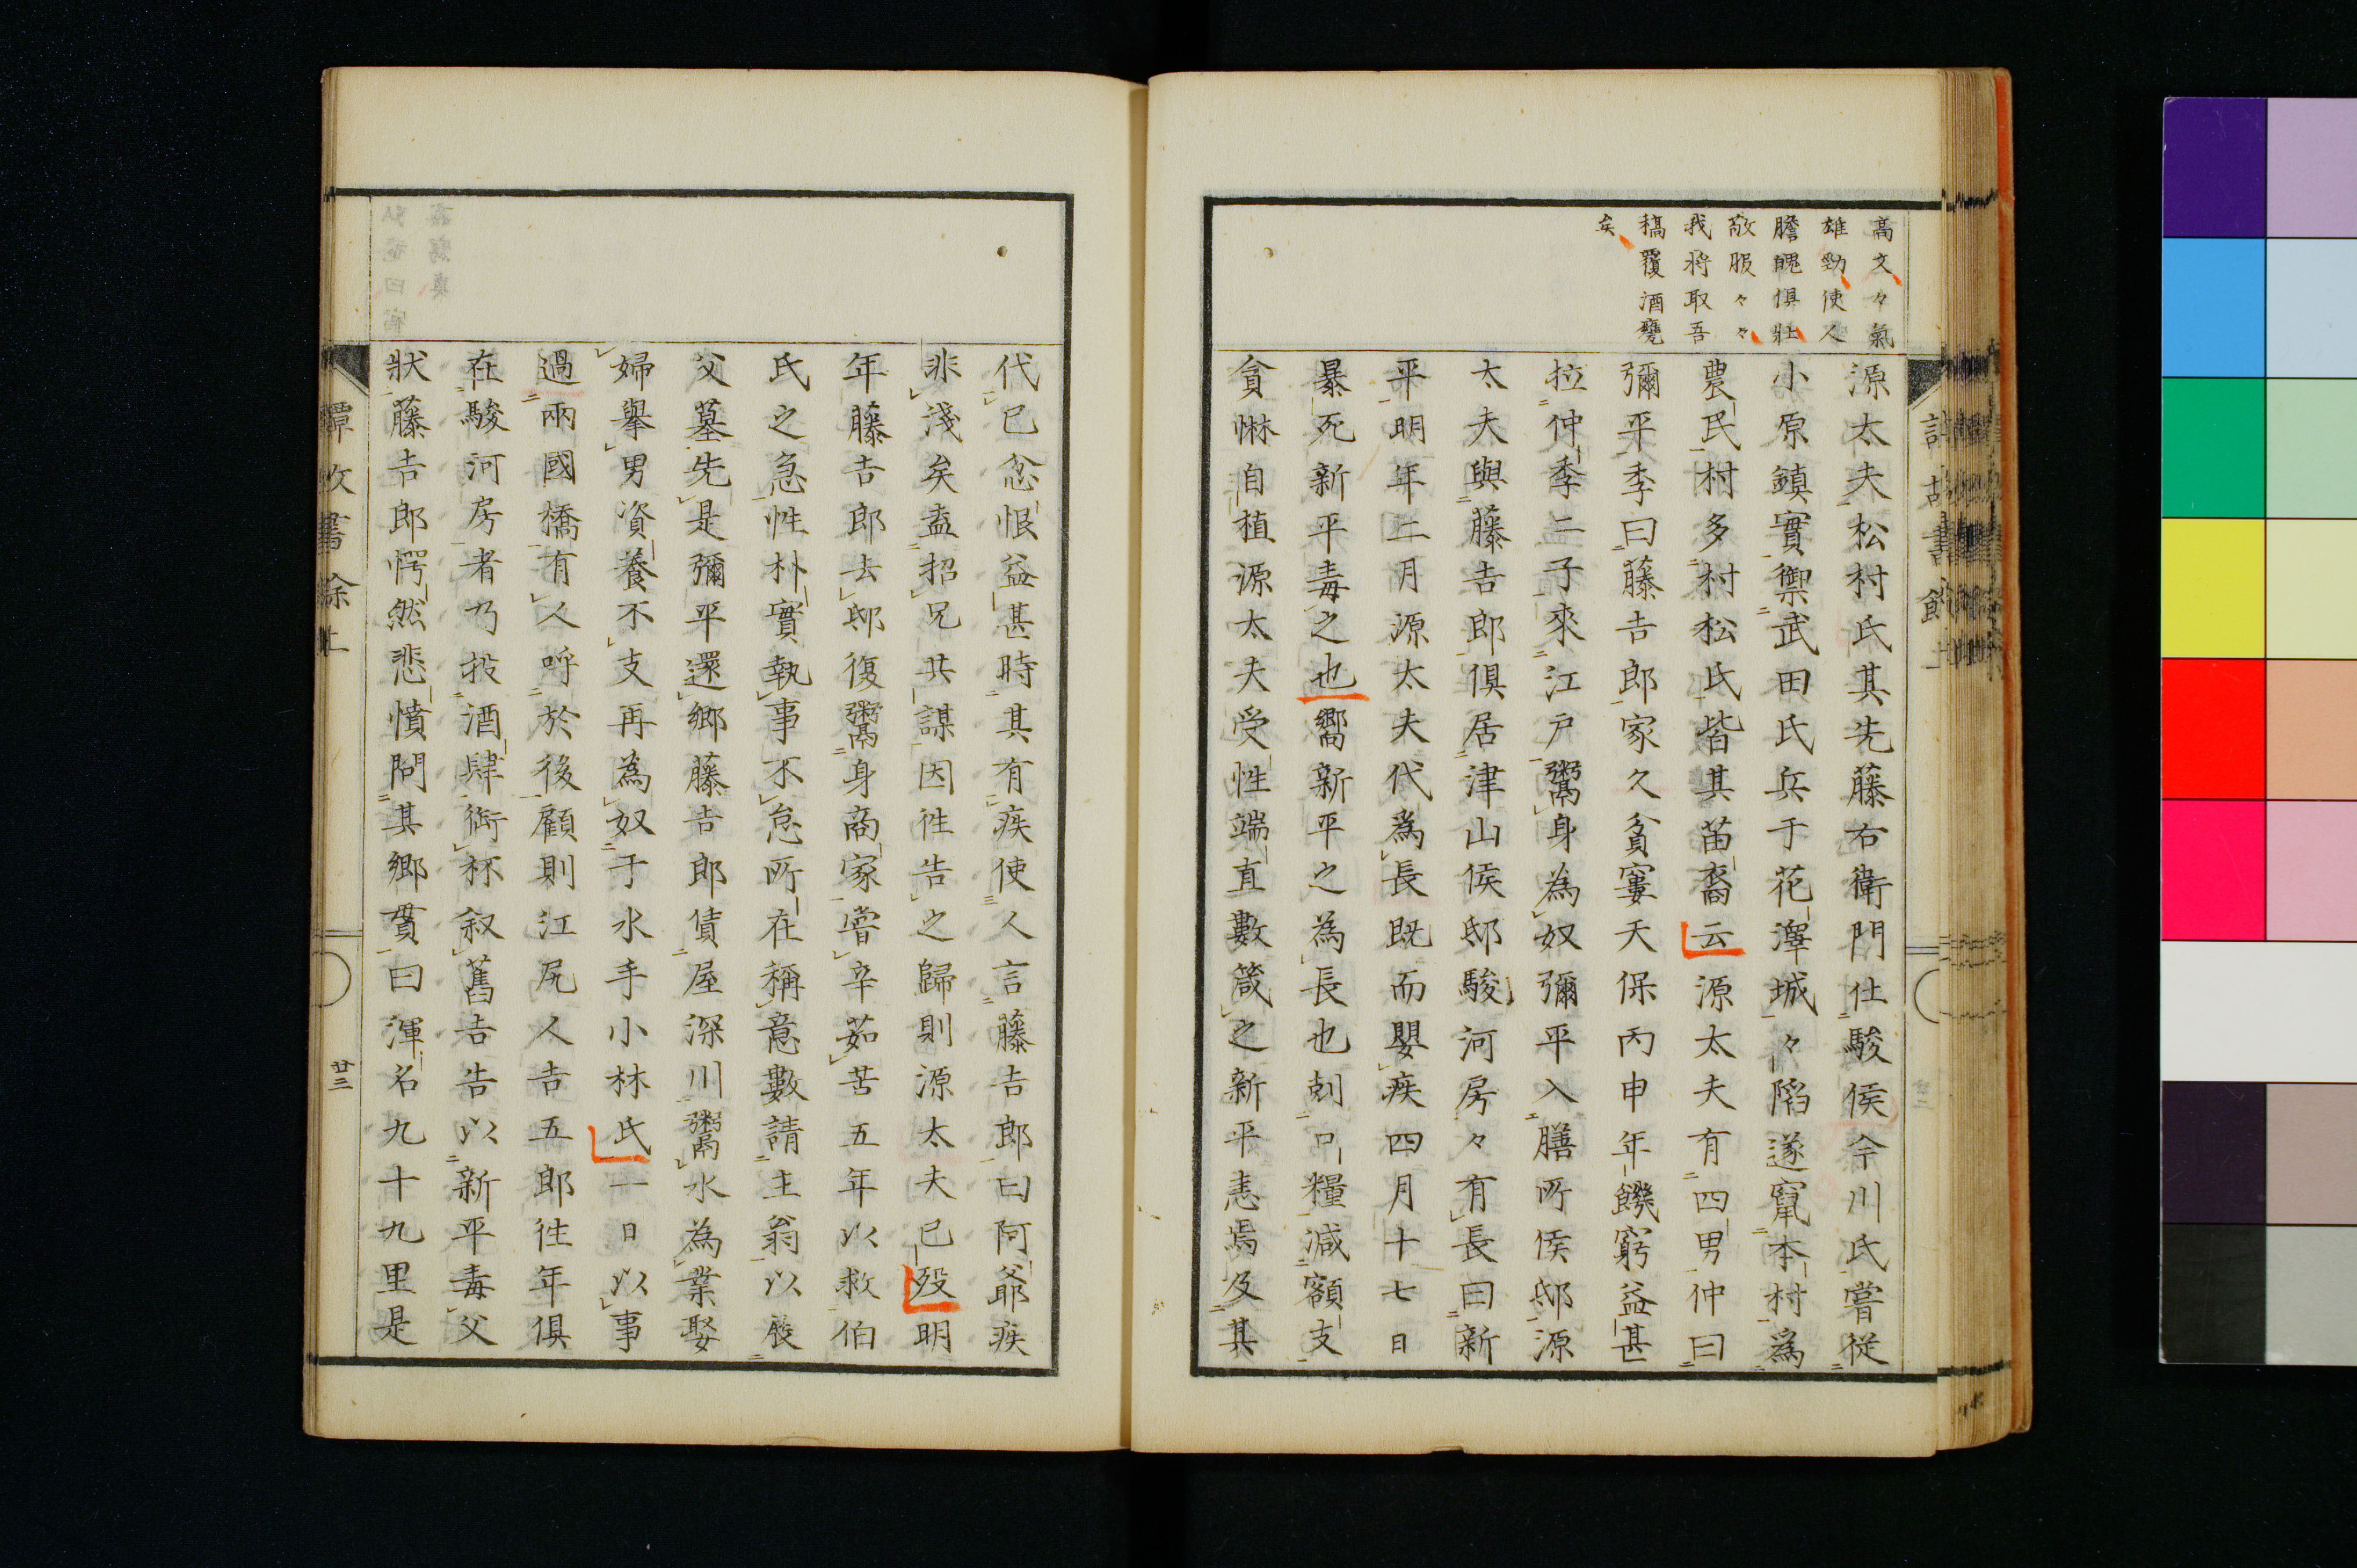 高文々氣
雄勁使人
膽魄俱壯
敬服々々
我將取吾
稿覆酒甕
矣
源太夫松村氏其先藤右衛門仕駿侯今川氏嘗従
小原鎮實禦武田氏兵于花澤城々陷遂竄本村爲
農民村多村松氏皆其苗裔云源太夫有四男仲曰
彌平季曰藤吉郎家久貧窶天保丙申年饑窮益甚
拉仲季二子來江戸鬻身為奴彌平入膳所侯邸源
太夫與藤吉郎俱居津山侯邸駿河房々有長曰新
平明年二月源太夫代爲長既而嬰疾四月十七日
暴死新平毒之也嚮新平之為長也剋口糧減額支
貪惏自植源太夫受性端直數箴之新平恚焉及其
代已忿恨益甚時其有疾使人言藤吉郎曰阿爺疾
非淺矣盍招兄共謀因徃告之歸則源太夫已歿明
年藤吉郎去邸復鬻身商家嘗辛茹苦五年以救伯
氏之急性朴實執事不怠所在稱意數請主翁以展
父墓先是彌平還鄉藤吉郎債屋深川鬻水為業娶
婦擧男資養不支再為奴于水手小林氏一日以事
過兩國橋有人呼於後顧則江尻人吉五郎徃年俱
在駿河房者乃投酒肆銜杯叙舊吉告以新平毒父
狀藤吉郎愕然悲憤問其鄉貫曰渾名九十九里是
廿三